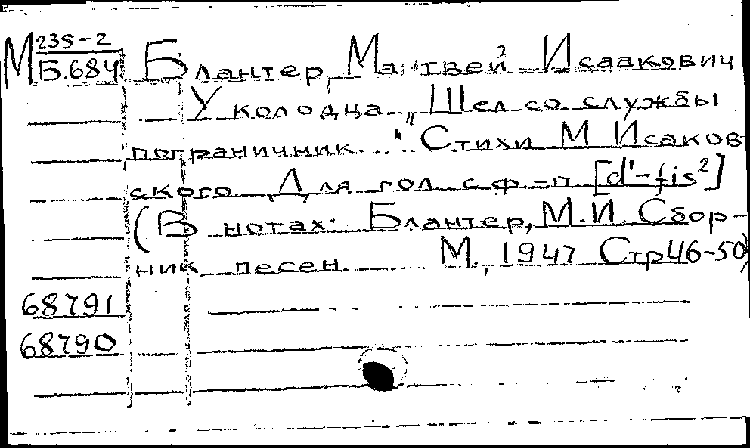 М 235-2
Б.684 Блантер, Матвей Исаакович
У колодца „Шел со службы
пограничник..." Стихи М Исаков-
ского Для гол. с ф-п. [d'-fis²]
(В нотах: Блантер, М.И. Сбор-
ник песен М., 1947 Стр 46-50)
68791
68790